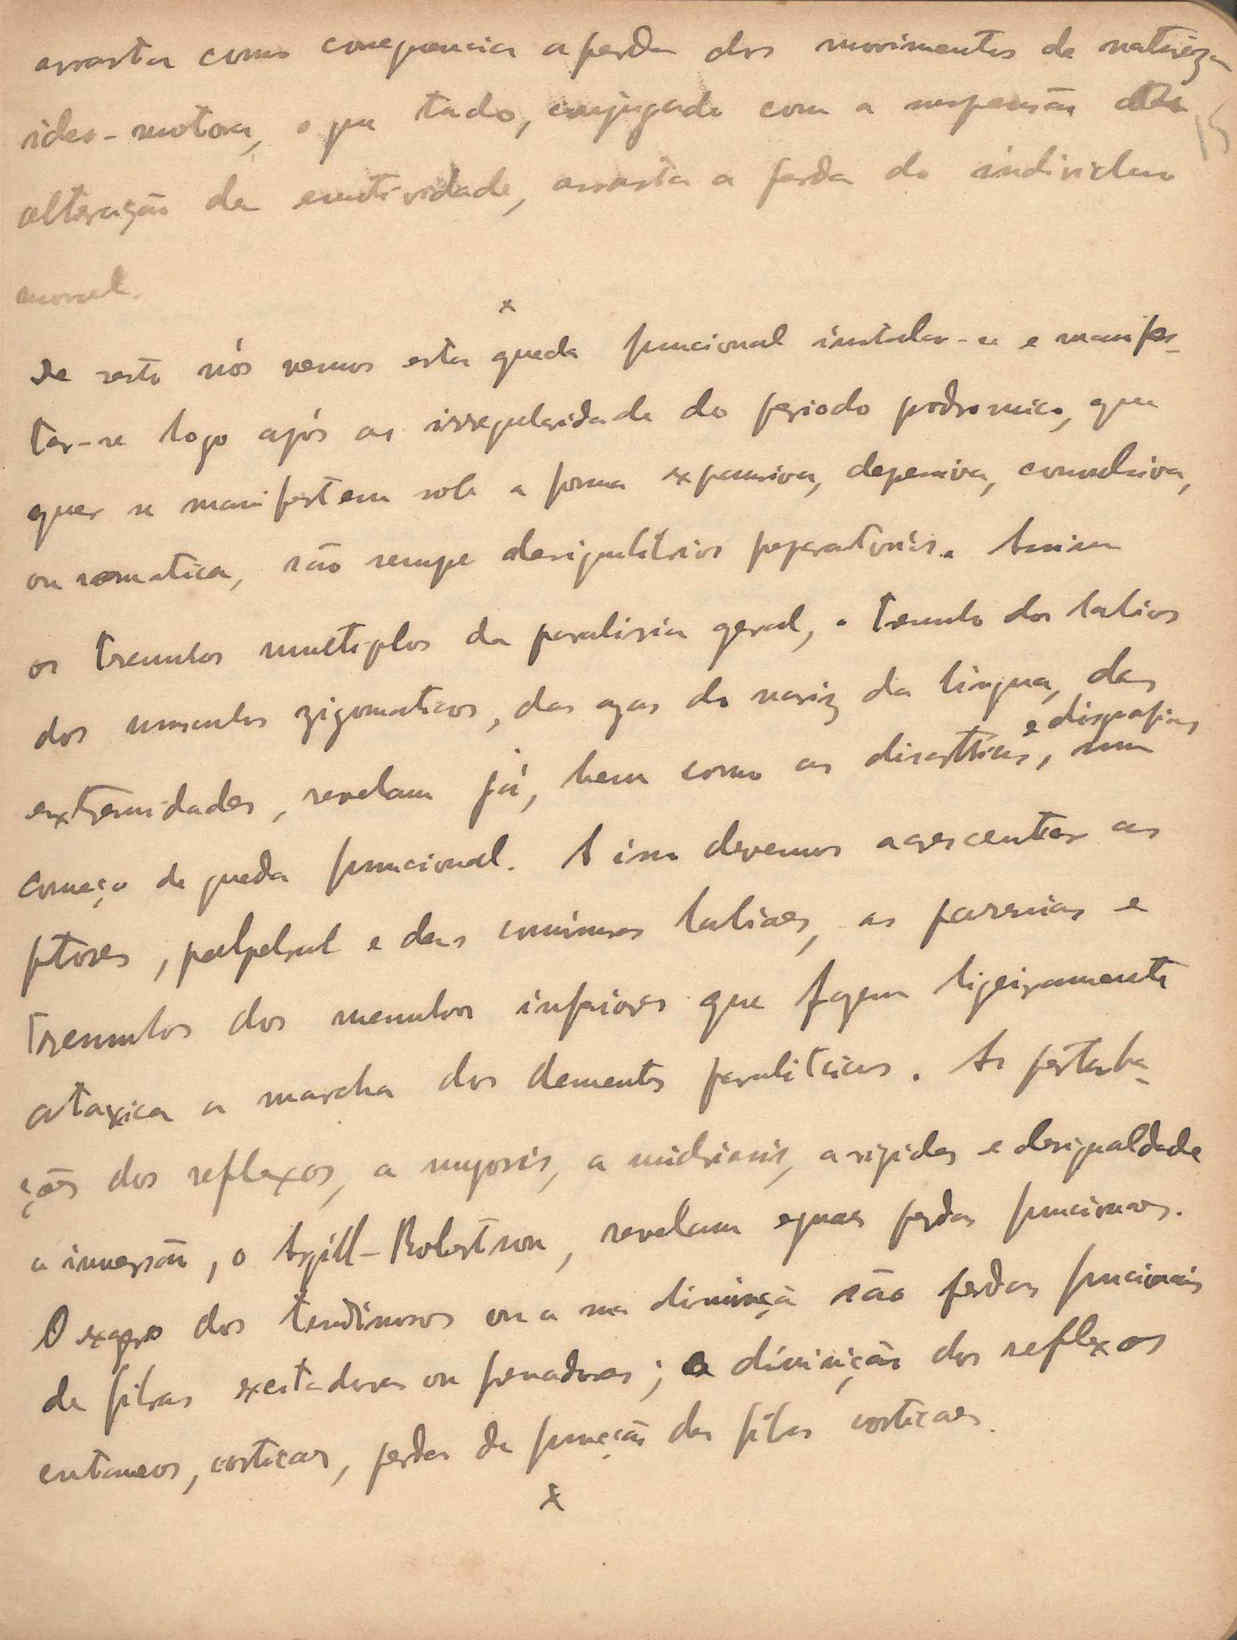 arrasta como consequencia a perda dos movimentos de natureza
ideo-motora, o que tudo, conjugado com a suspensão
alteração da emotividade, arrasta a perda do individuo
moral.
x
De resto nós vemos esta queda funcional instalar-se e manifes-
tar-se logo após as irregularidade do periodo prodromico, que
quer se manifestem sob a forma expansiva, depensiva, convulsiva,
ou somatica, são sempe desiquilibrios preparatorios. Assim
os tremulos multiplos da paralisia geral, o tremulo dos labios
dos musculos zigomaticos, das azas do nariz da lingua, das
e disgrafias
extremidades, revelam já, bem como as disartrias, um
começo de queda funcional. A isso devemos acrescentar as
ptoses, palpebral e das comissuras labiaes, as paresias e
tremulos dos membros inferiores que fazem ligeiramente
ataxica a marcha dos dementes paraliticos. As perturba-
ções dos reflexos, a myosis, a midriasis, a rigides e desigualdade
a inversão, o Argill-Robertson, revelam eguaes perdas funcionaes.
O exagero dos tendinosos ou a sua diminuiçã são perdas funcionais
de fibras excitadoras ou frenadoras; a diminição dos reflexos
cutaneos, corticaes, perdas de funcção das fibras corticaes.
x